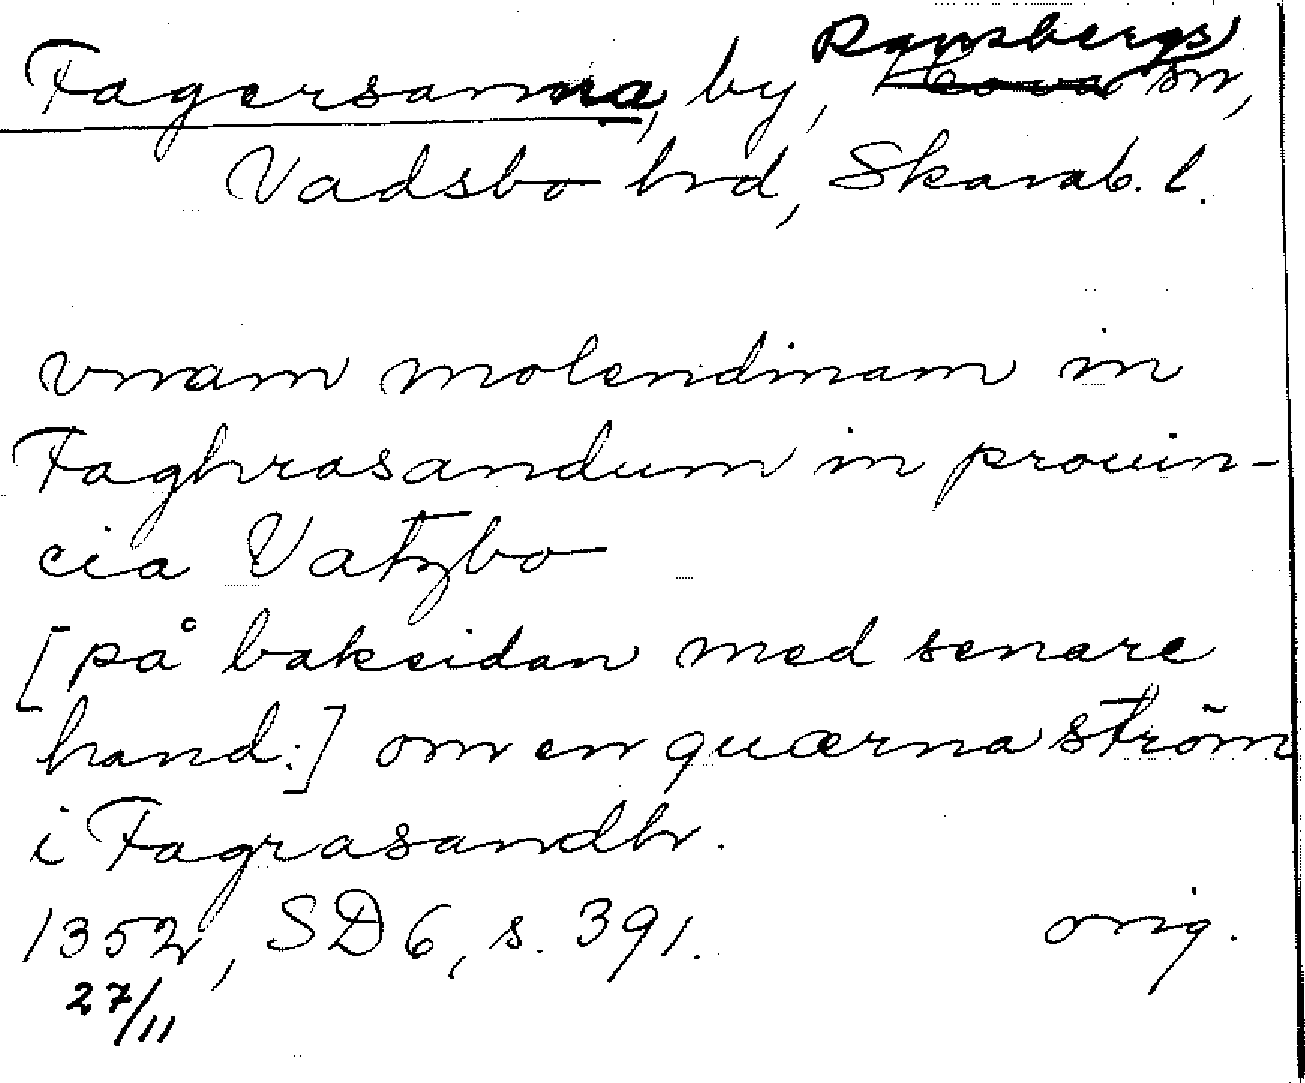 Ransbergs
Fagersanna, by, Hova sn,
Vadsbo hrd, Skarab. l.
vnam molendinam in
Faghrasandum in prouin-
cia Vatzbo
[på baksidan med senare
hand:] om en quærna ström
i Fagrasandh.
1352, SD 6, s. 391. orig.
27/11